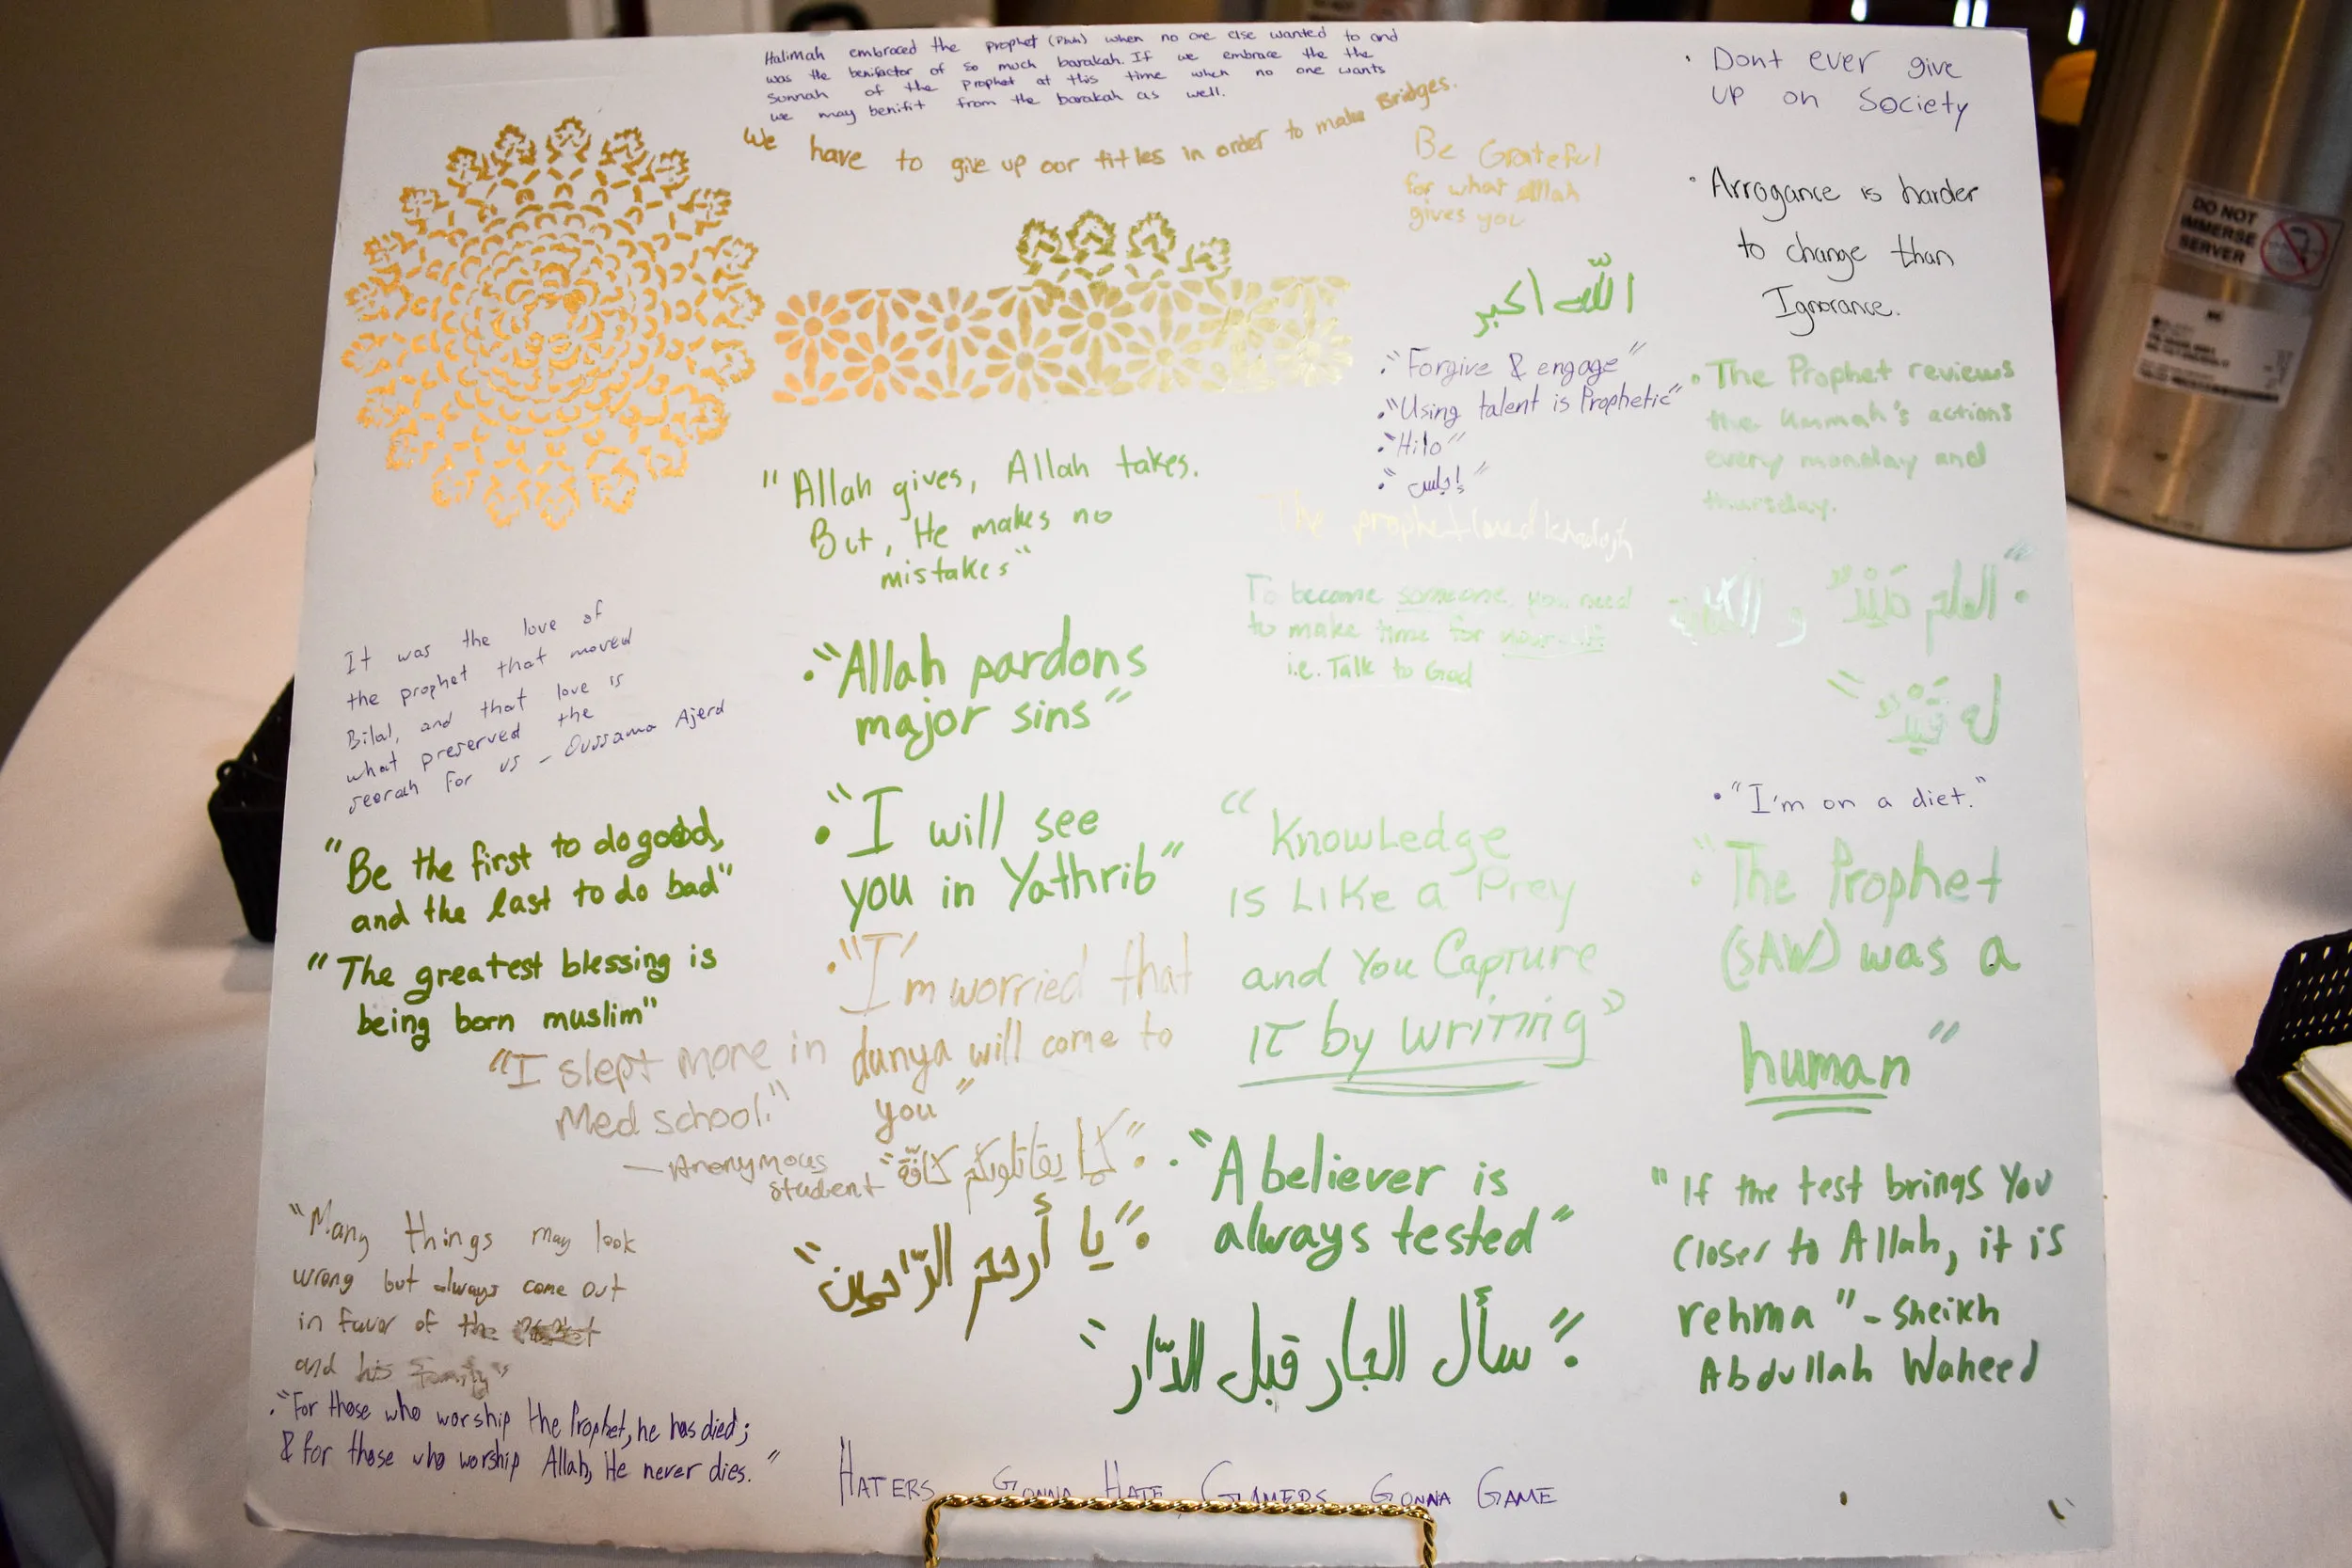 Halimah embraced the prophet (Pbuh) when no one else wanted to and
was the benifactor of so much barakah. If we embrace the the
Sunnah of the Prophet at this time when no one wants
we may benifit from the barakah as well.
We have to give up our titles in order to make Bridges.
Be Grateful
for what allah
gives you
الله اكبر
• "Forgive & engage"
• "Using talent is Prophetic"
• "Hilo"
• "إجلس"
The prophet loved khadijh
To become someone you need
to make time for yourself
i.e. Talk to God
• Dont ever give
up on Society
• Arrogance is harder
to change than
Ignorance.
• The Prophet reviews
the Ummah's actions
every monday and
thursday.
• "العلم صَيْدٌ و
له قَيْدٌ"
• "I'm on a diet."
• "The Prophet
(SAW) was a
human"
"If the test brings You
Closer to Allah, it is
rehma" - Sheikh
Abdullah Waheed
"Allah gives, Allah takes.
But, He makes no
mistakes"
• "Allah pardons
major sins"
• "I will see
you in Yathrib"
• "I'm worried that
dunya will come to
you"
• "كما يقاتلونكم كافّة"
• "يا أرحم الرّاحمين"
"Knowledge
is Like a Prey
and You Capture
it by writing"
• "A believer is
always tested"
• "سأل الجار قبل الدّار"
It was the love of
the prophet that moved
Bilal, and that love is
what preserved the
seerah for us - Oussama Ajerd
"Be the first to do good,
and the last to do bad"
"The greatest blessing is
being born muslim"
"I slept more in
Med school."
— Anonymous
student
"Many things may look
wrong but always come out
in favor of the
and his family"
• "For those who worship the Prophet, he has died;
& for those who worship Allah, He never dies."
HATERS GONNA HATE GAMERS GONNA GAME
DO NOT
IMMERSE
SERVER